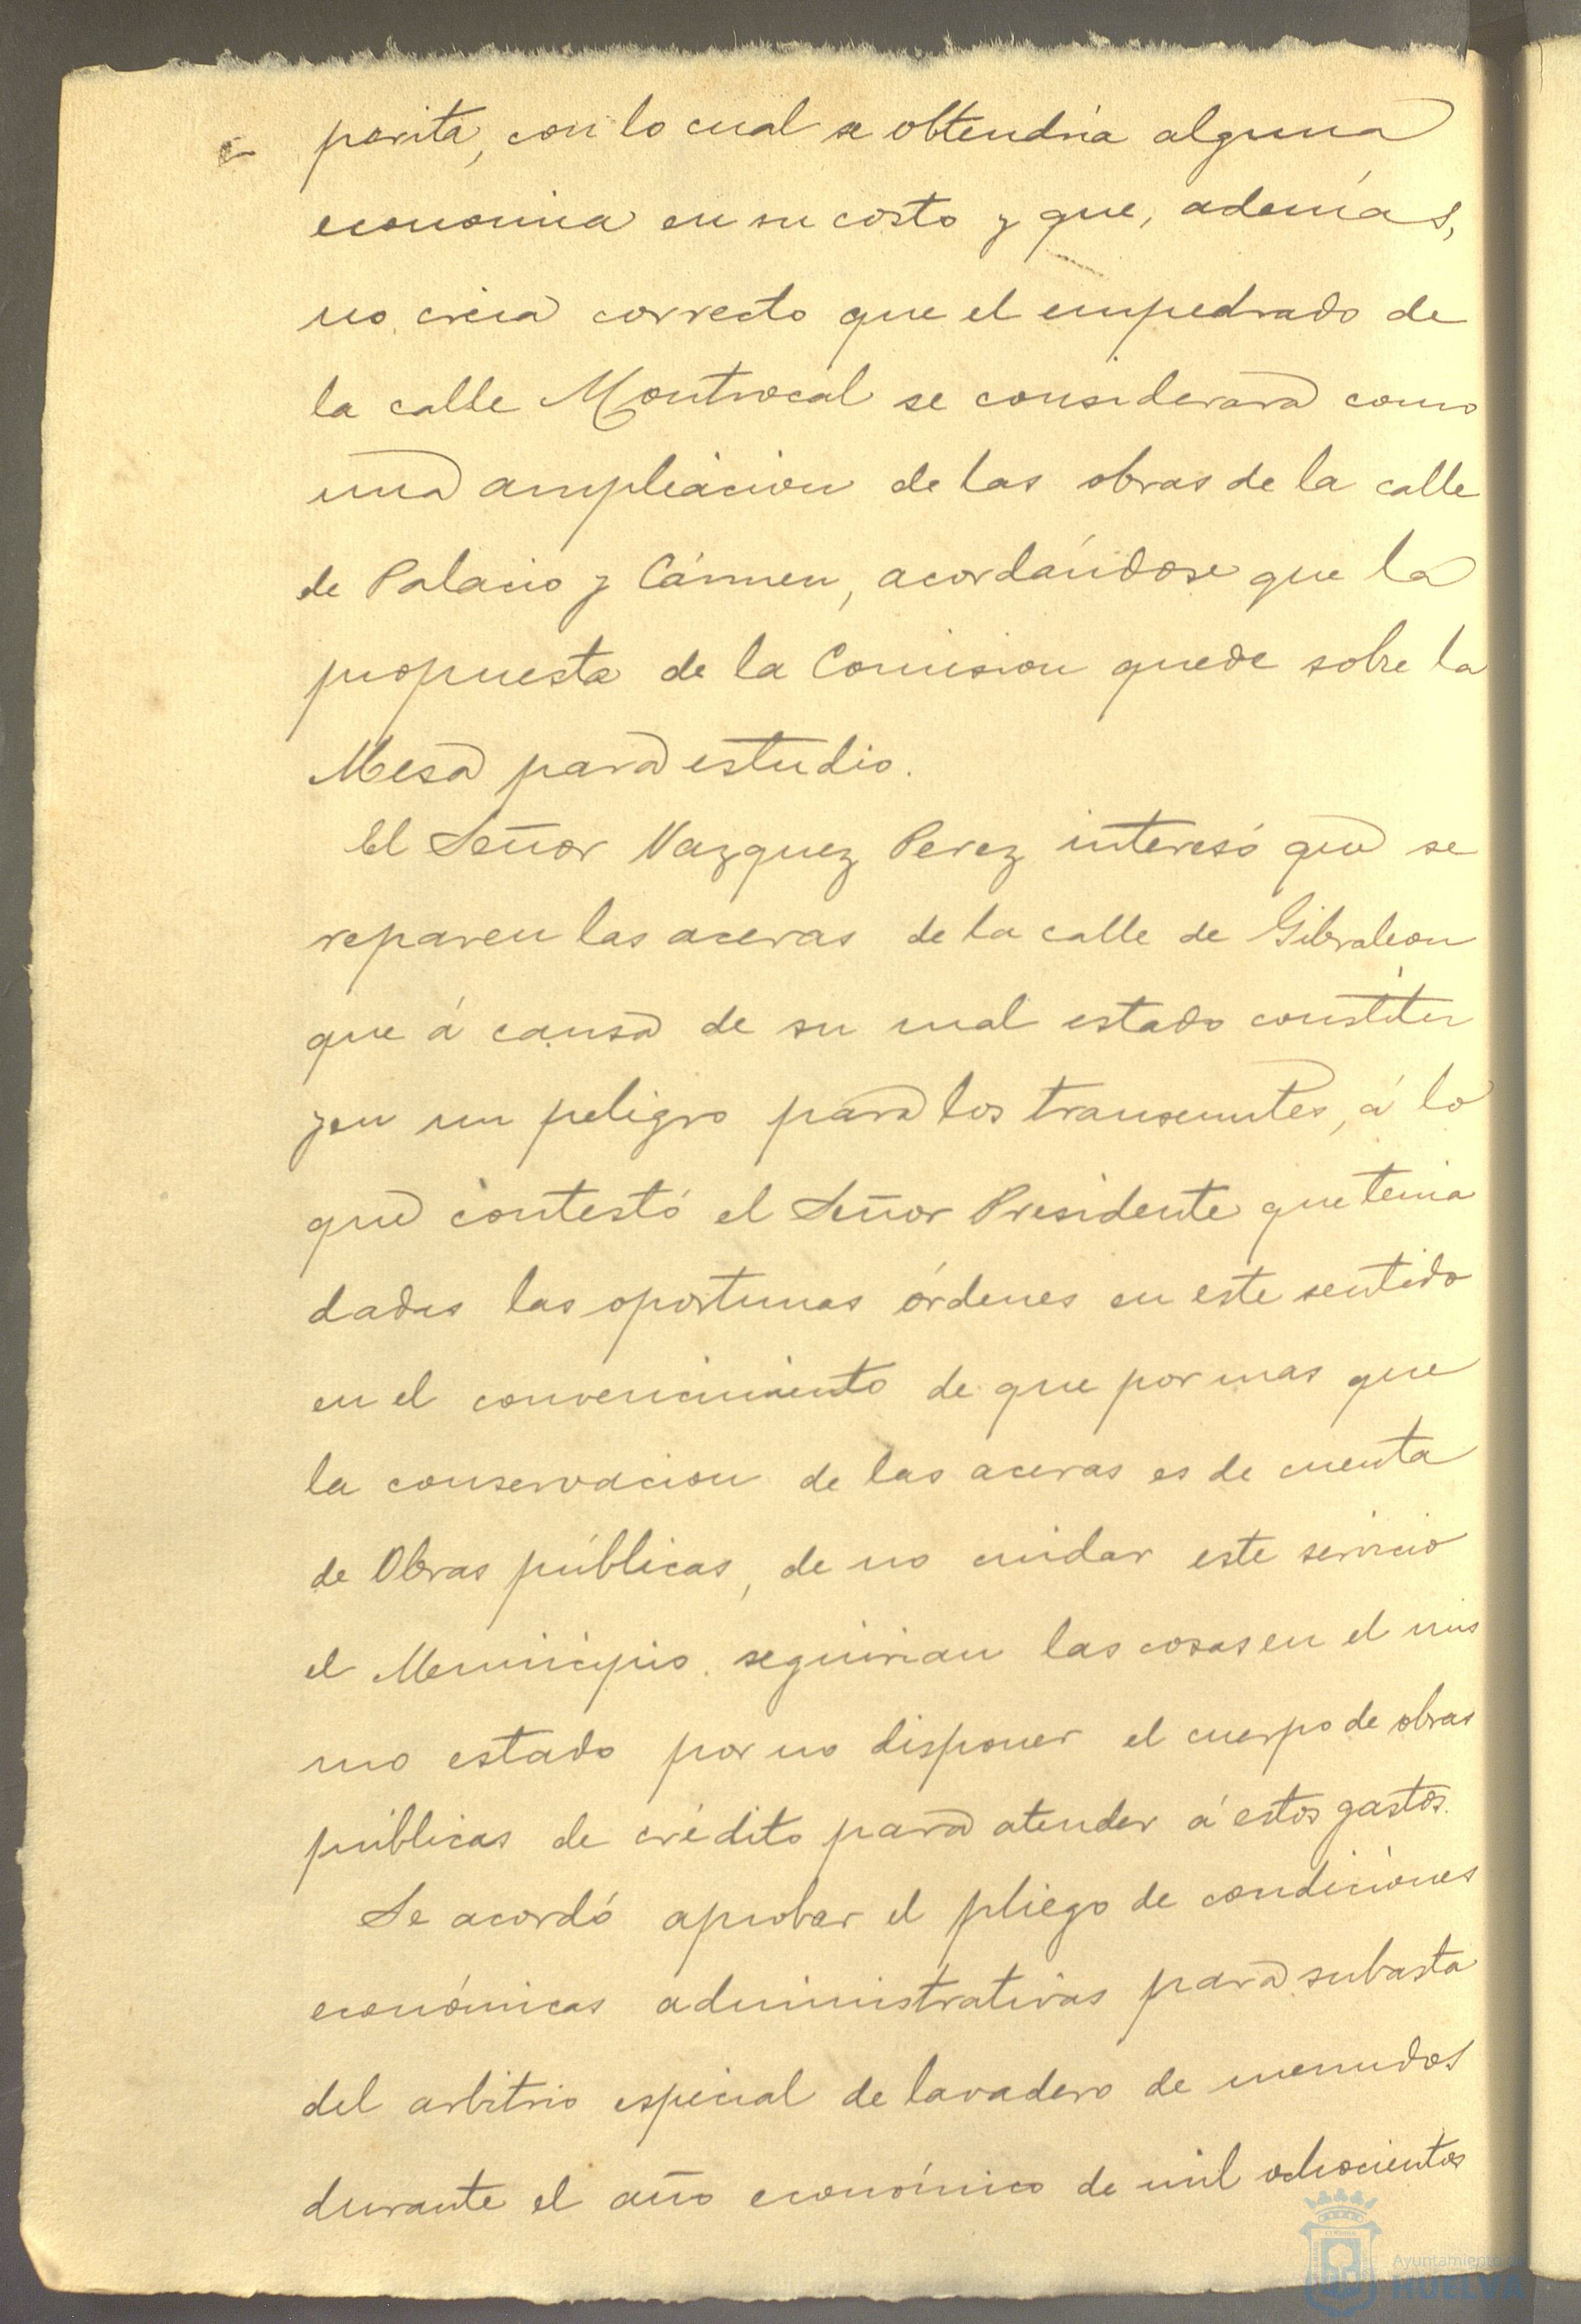 porita, con lo cual se obtendria alguna
economia en su costo y que, además,
no creia correcto que el empedrado de
la calle Montrocal se considerara como
una ampliacion de las obras de la calle
de Palacio y Cármen, acordándose que la
propuesta de la Comision quede sobre la
Mesa para estudio.
El Señor Vazquez Perez interesó que se
reparen las aceras de la calle de Gibraleon
que á causa de su mal estado constitu
yen un peligro para los transeuntes, á lo
que contestó el Señor Presidente que tenia
dadas las oportunas órdenes en este sentido
en el convencimiento de que por mas que
la conservacion de las aceras es de cuenta
de Obras públicas, de no cuidar este servicio
el Municipio seguirian las cosas en el mis
mo estado por no disponer el cuerpo de obras
públicas de crédito para atender á estos gastos.
Se acordó aprobar el pliego de condiciones
económicas administrativas para subasta
del arbitrio especial de lavadero de menudos
durante el año económico de mil ochocientos
Ayuntamiento de
HUELVA